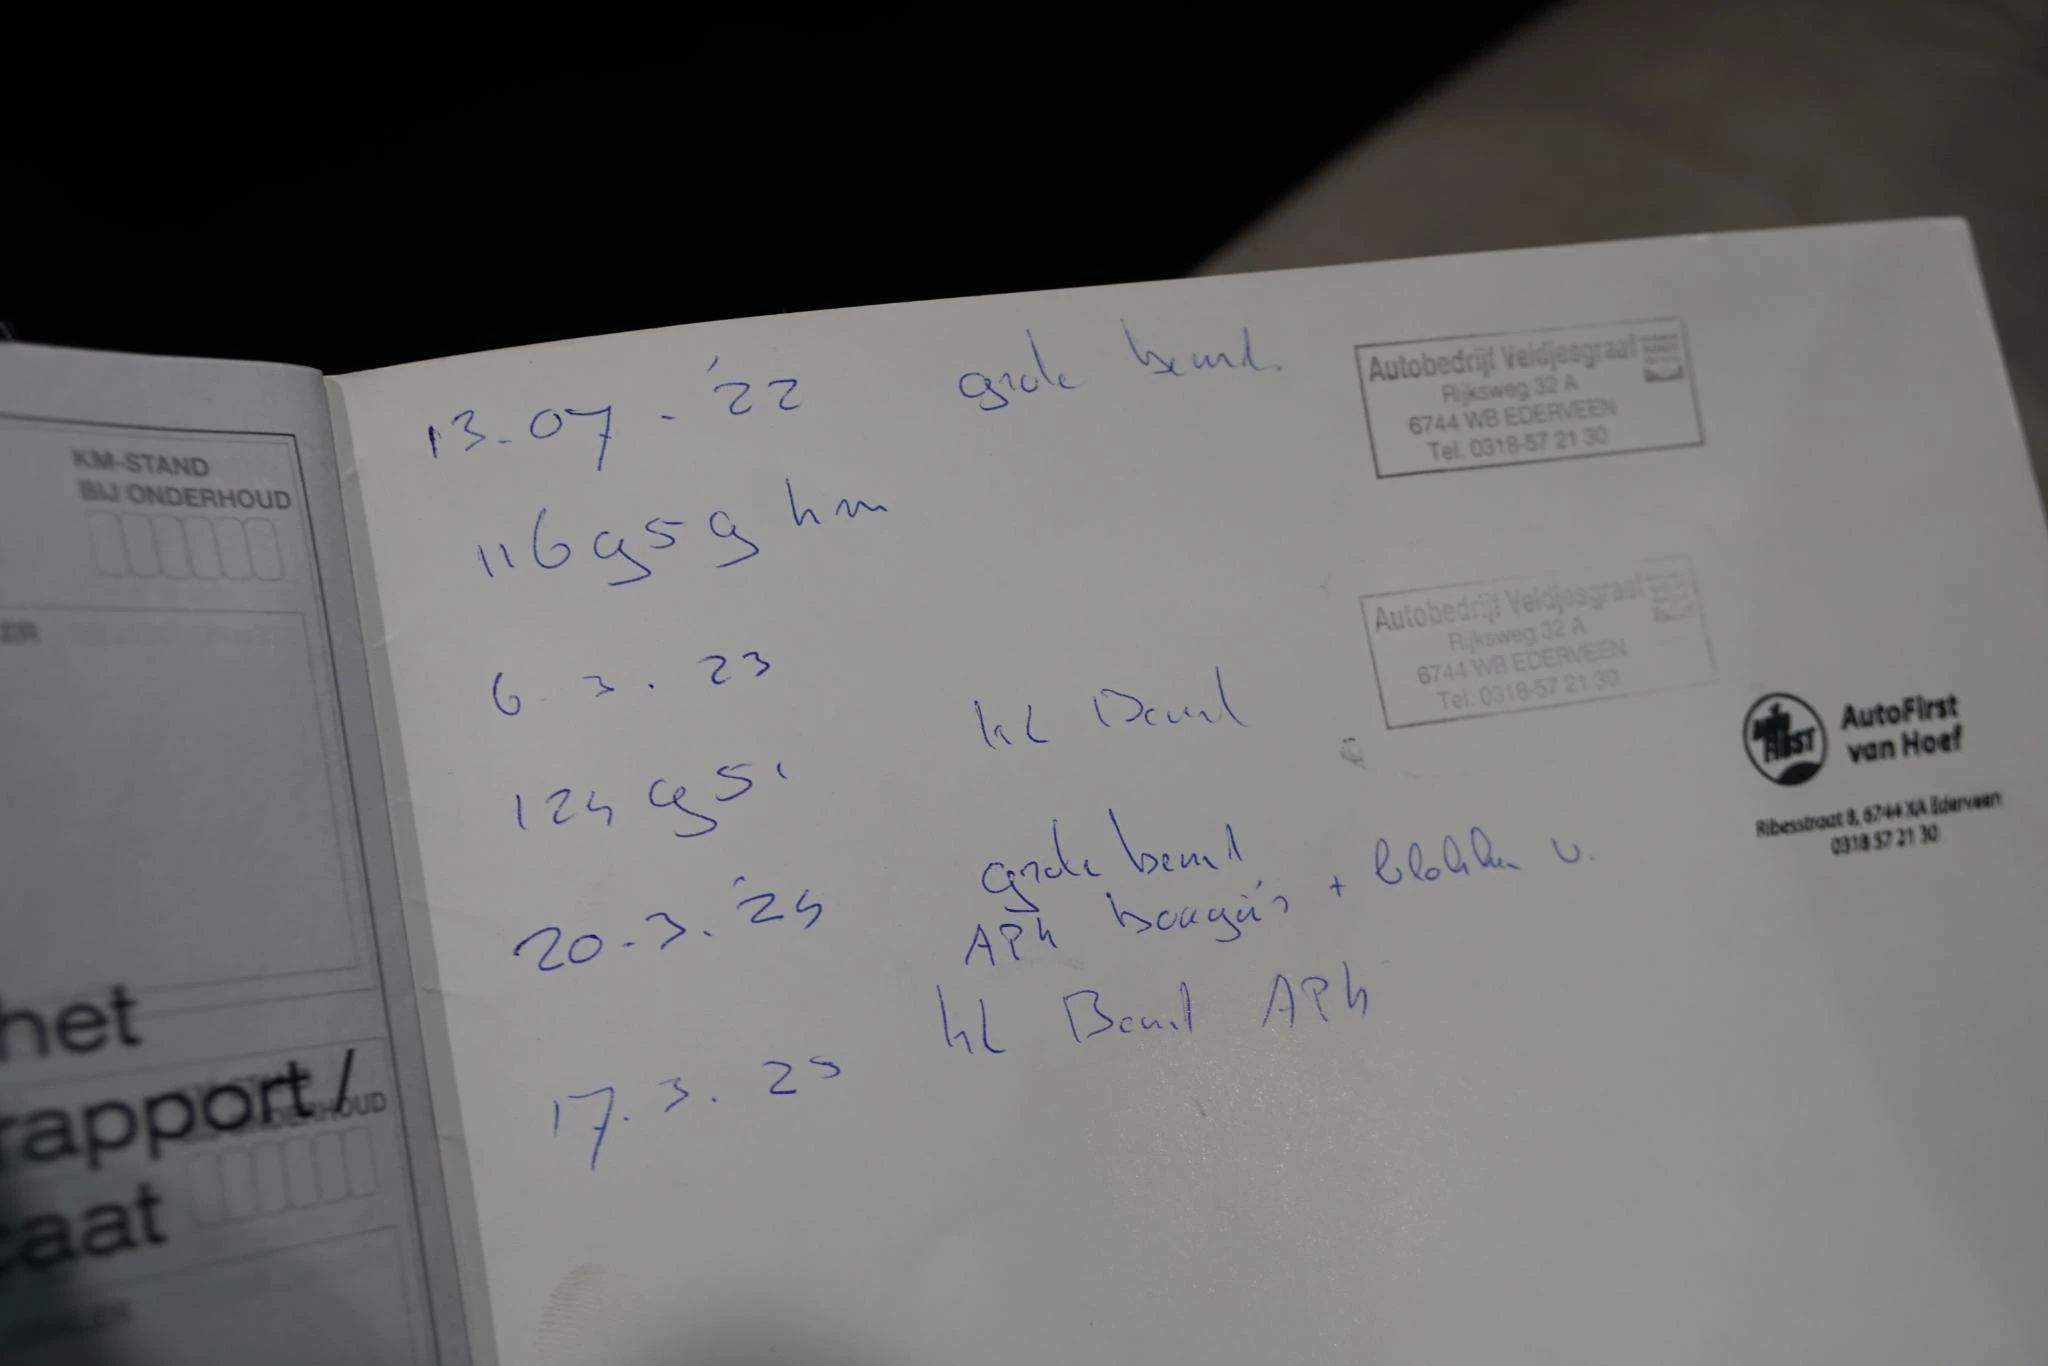 KM-STAND
BIJ ONDERHOUD
het
rapport /
caat
13-07-'22 grote beurt
116959 km
Autobedrijf Veldjesgraaf
Rijksweg 32 A
6744 WB EDERVEEN
Tel. 0318-57 21 30
6.3.23 kl Beurt
124951
Autobedrijf Veldjesgraaf
Rijksweg 32 A
6744 WB EDERVEEN
Tel. 0318-57 21 30
20-3.'24 grote beurt
APK bougie's + blokken v.
17.3.25 kl Beurt APK
AutoFirst
van Hoef
Ribesstraat 8, 6744 XA Ederveen
0318 57 21 30